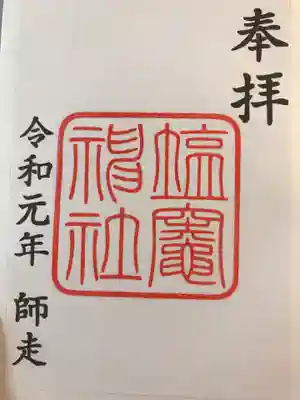 奉拝
塩竈
神社
令和元年 師走